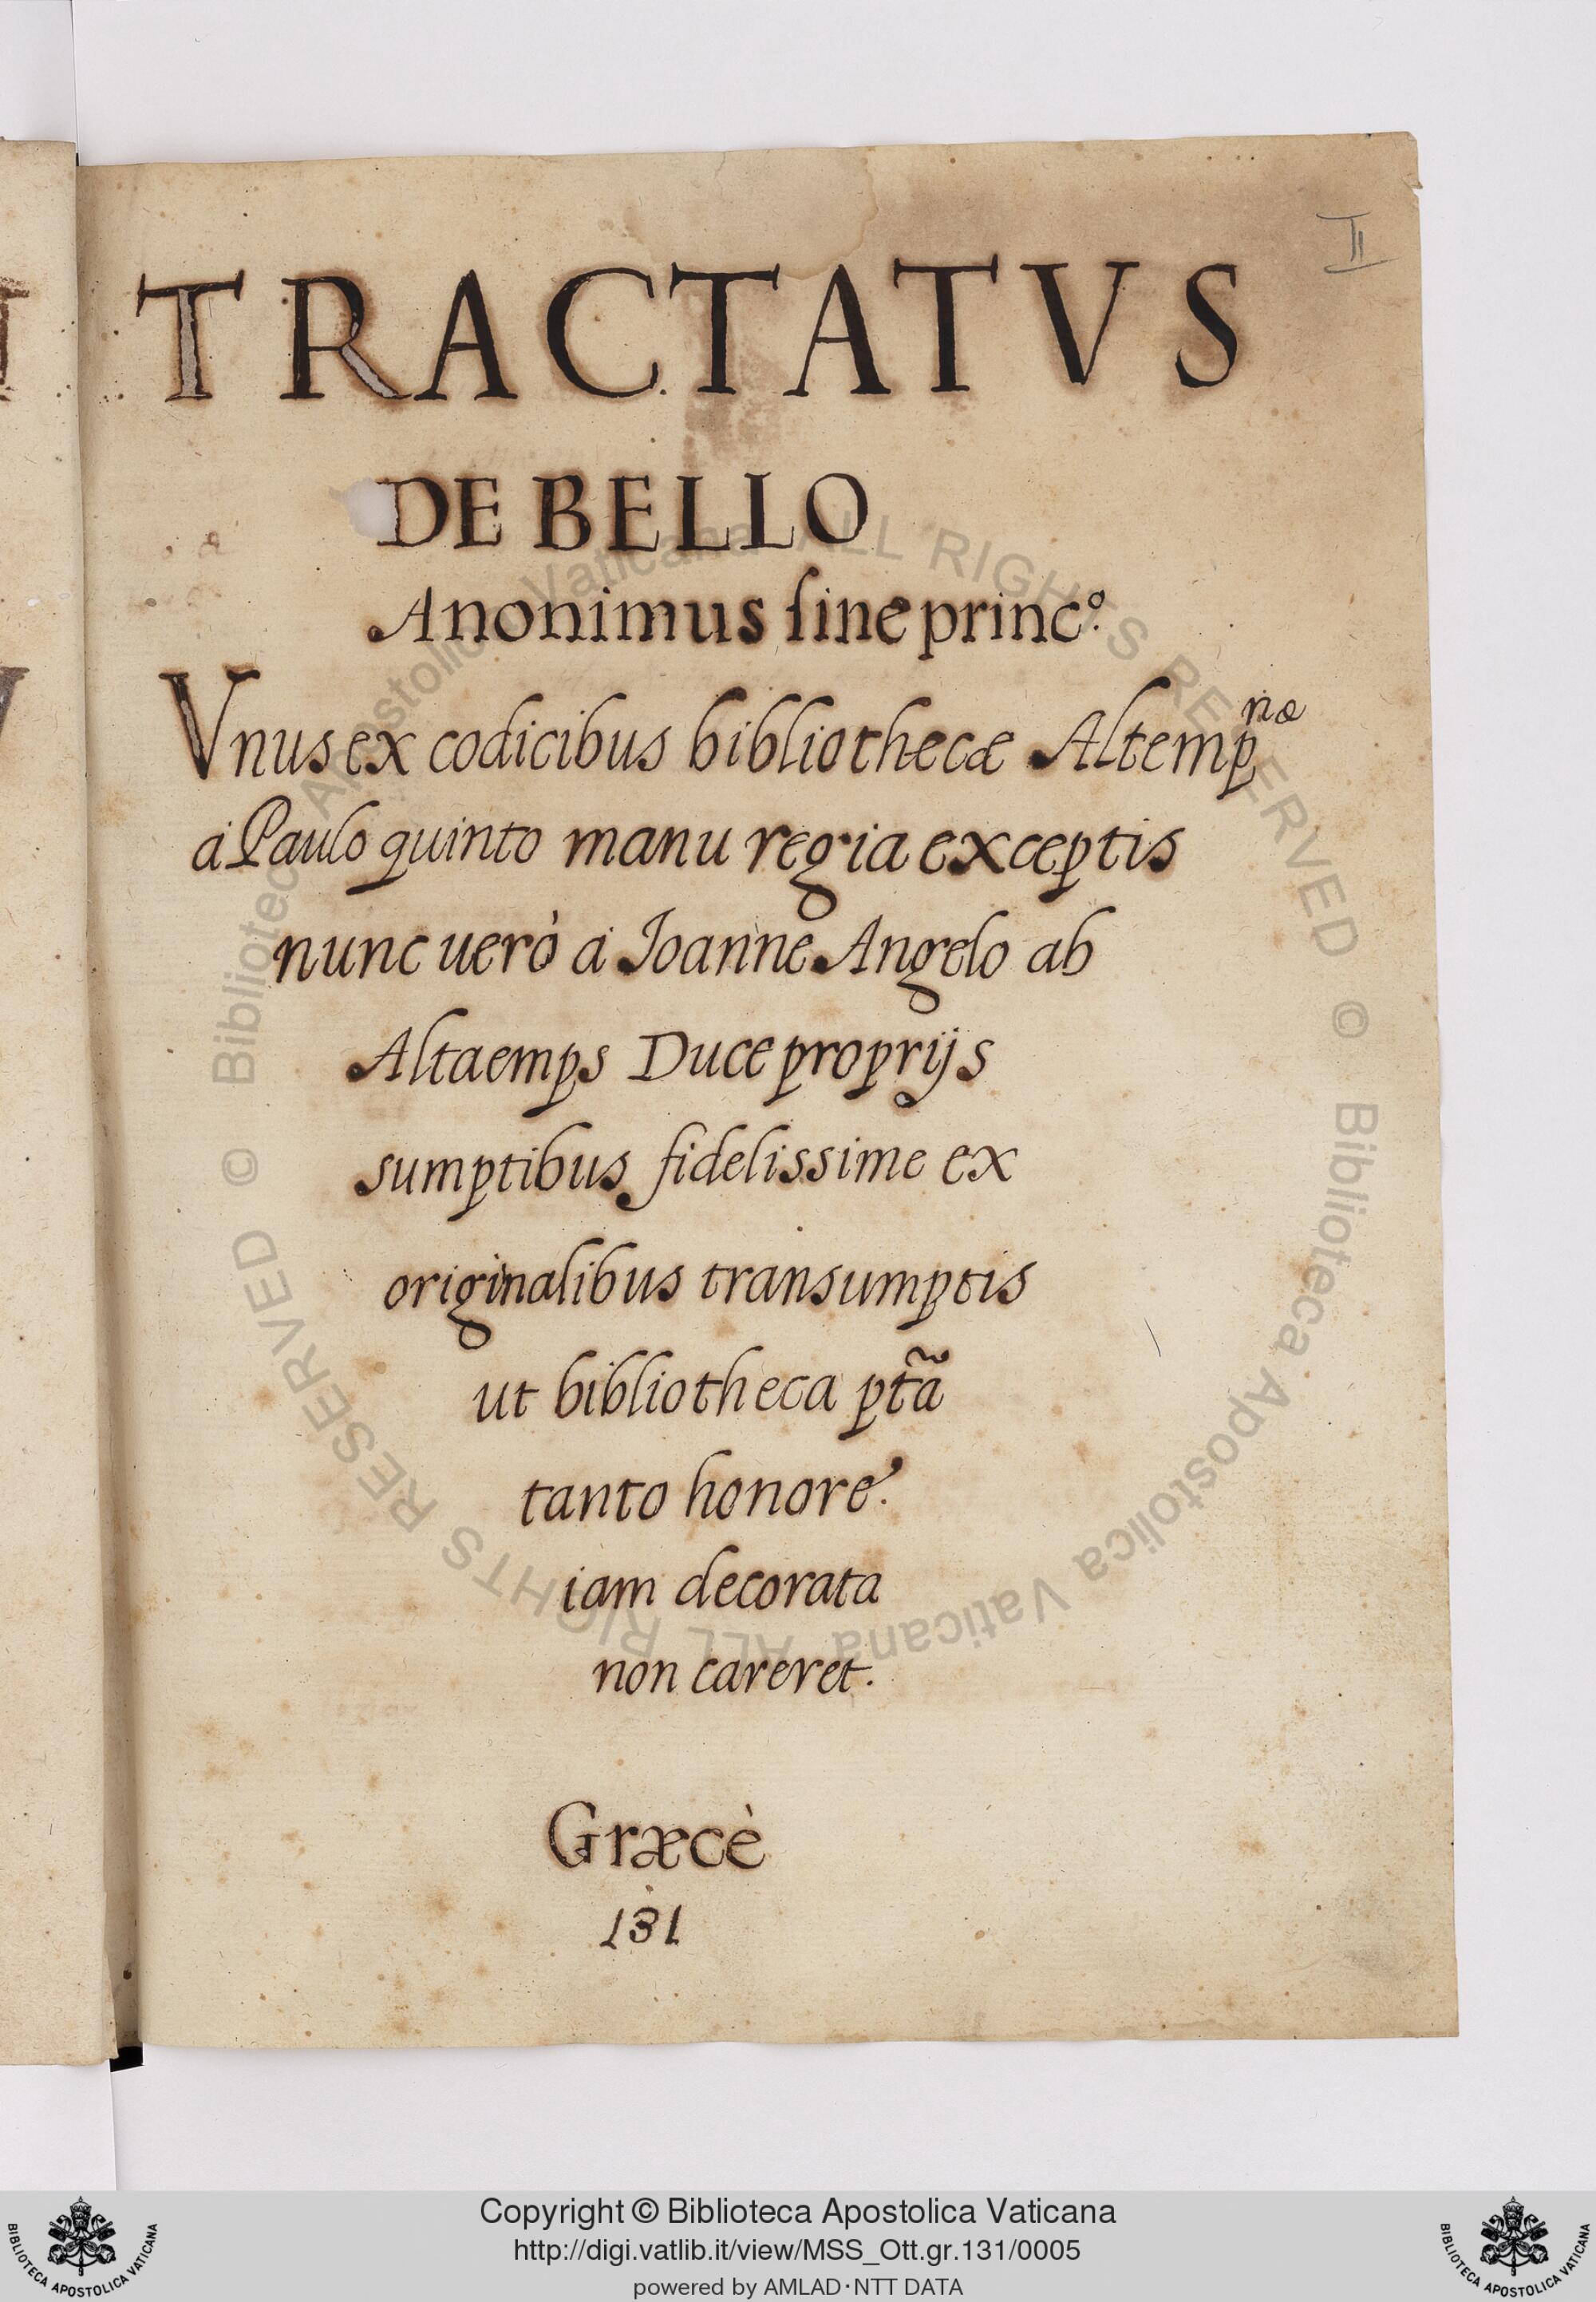 II
TRACTATVS
DE BELLO
Anonimus sine princº.
Vnus ex codicibus bibliothecæ Altempnæ
a Paulo quinto manu regia exceptis
nunc uerò a Joanne Angelo ab
Altaemps Duce proprijs
sumptibus fidelissime ex
originalibus transumptis
ut bibliotheca ptã
tanto honore.
iam decorata
non careret.
Græcè
131
© Biblioteca Apostolica Vaticana ALL RIGHTS RESERVED
© Biblioteca Apostolica Vaticana ALL RIGHTS RESERVED
Copyright © Biblioteca Apostolica Vaticana
http://digi.vatlib.it/view/MSS_Ott.gr.131/0005
powered by AMLAD·NTT DATA
BIBLIOTECA APOSTOLICA VATICANA
BIBLIOTECA APOSTOLICA VATICANA